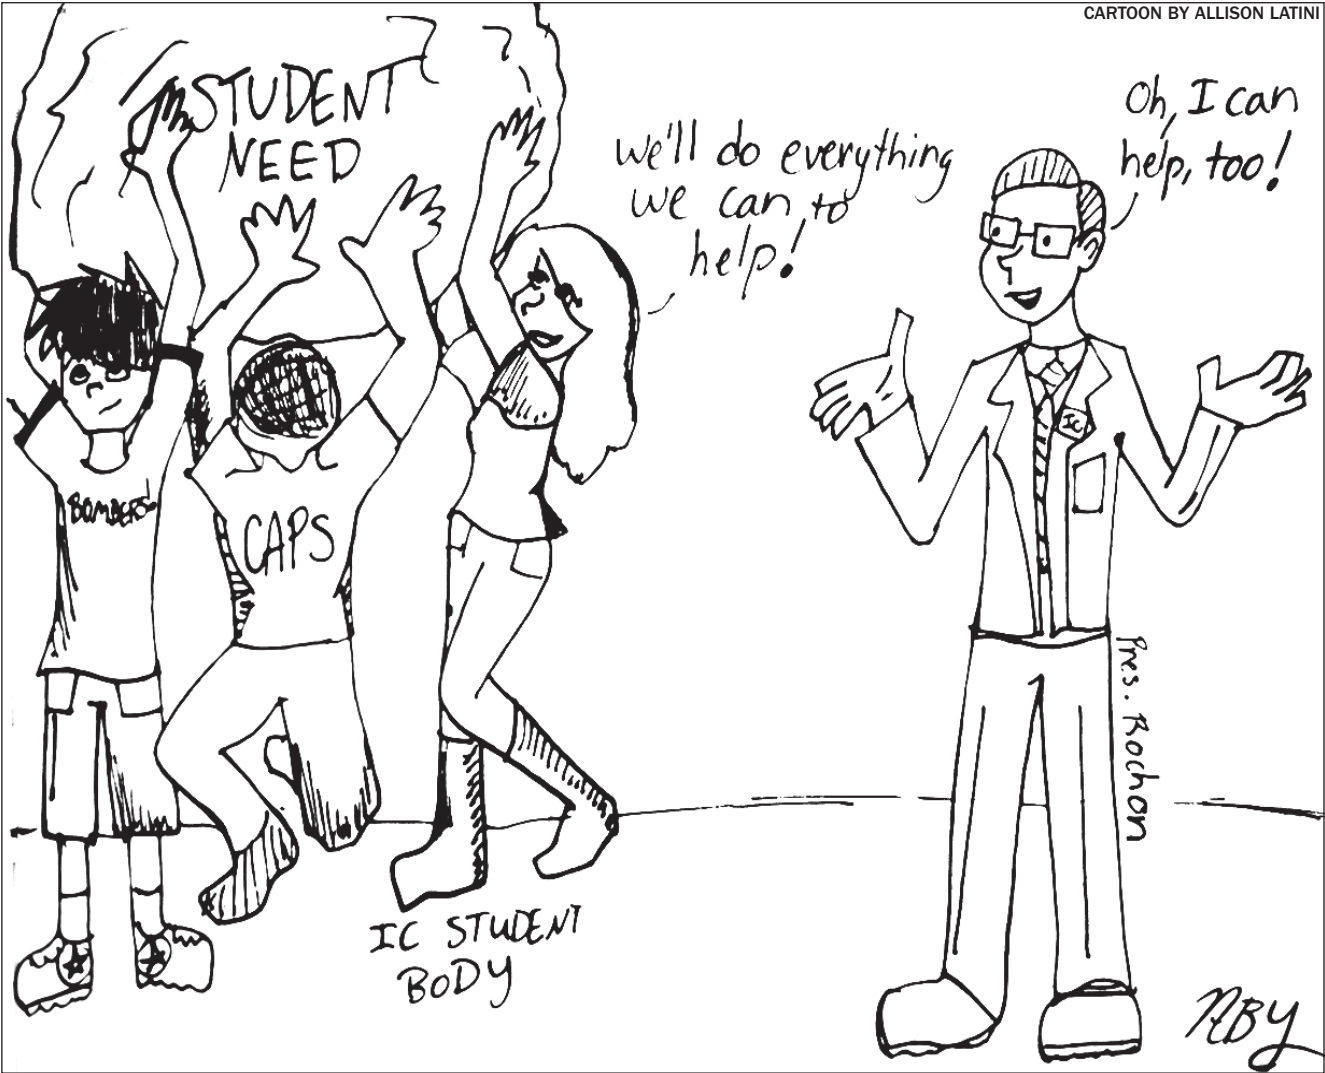 CARTOON BY ALLISON LATINI
STUDENT
NEED
We'll do everything
we can to
help!
Oh, I can
help, too!
IC
BOMBERS
CAPS
Pres. Rochon
IC STUDENT
BODY
ABY